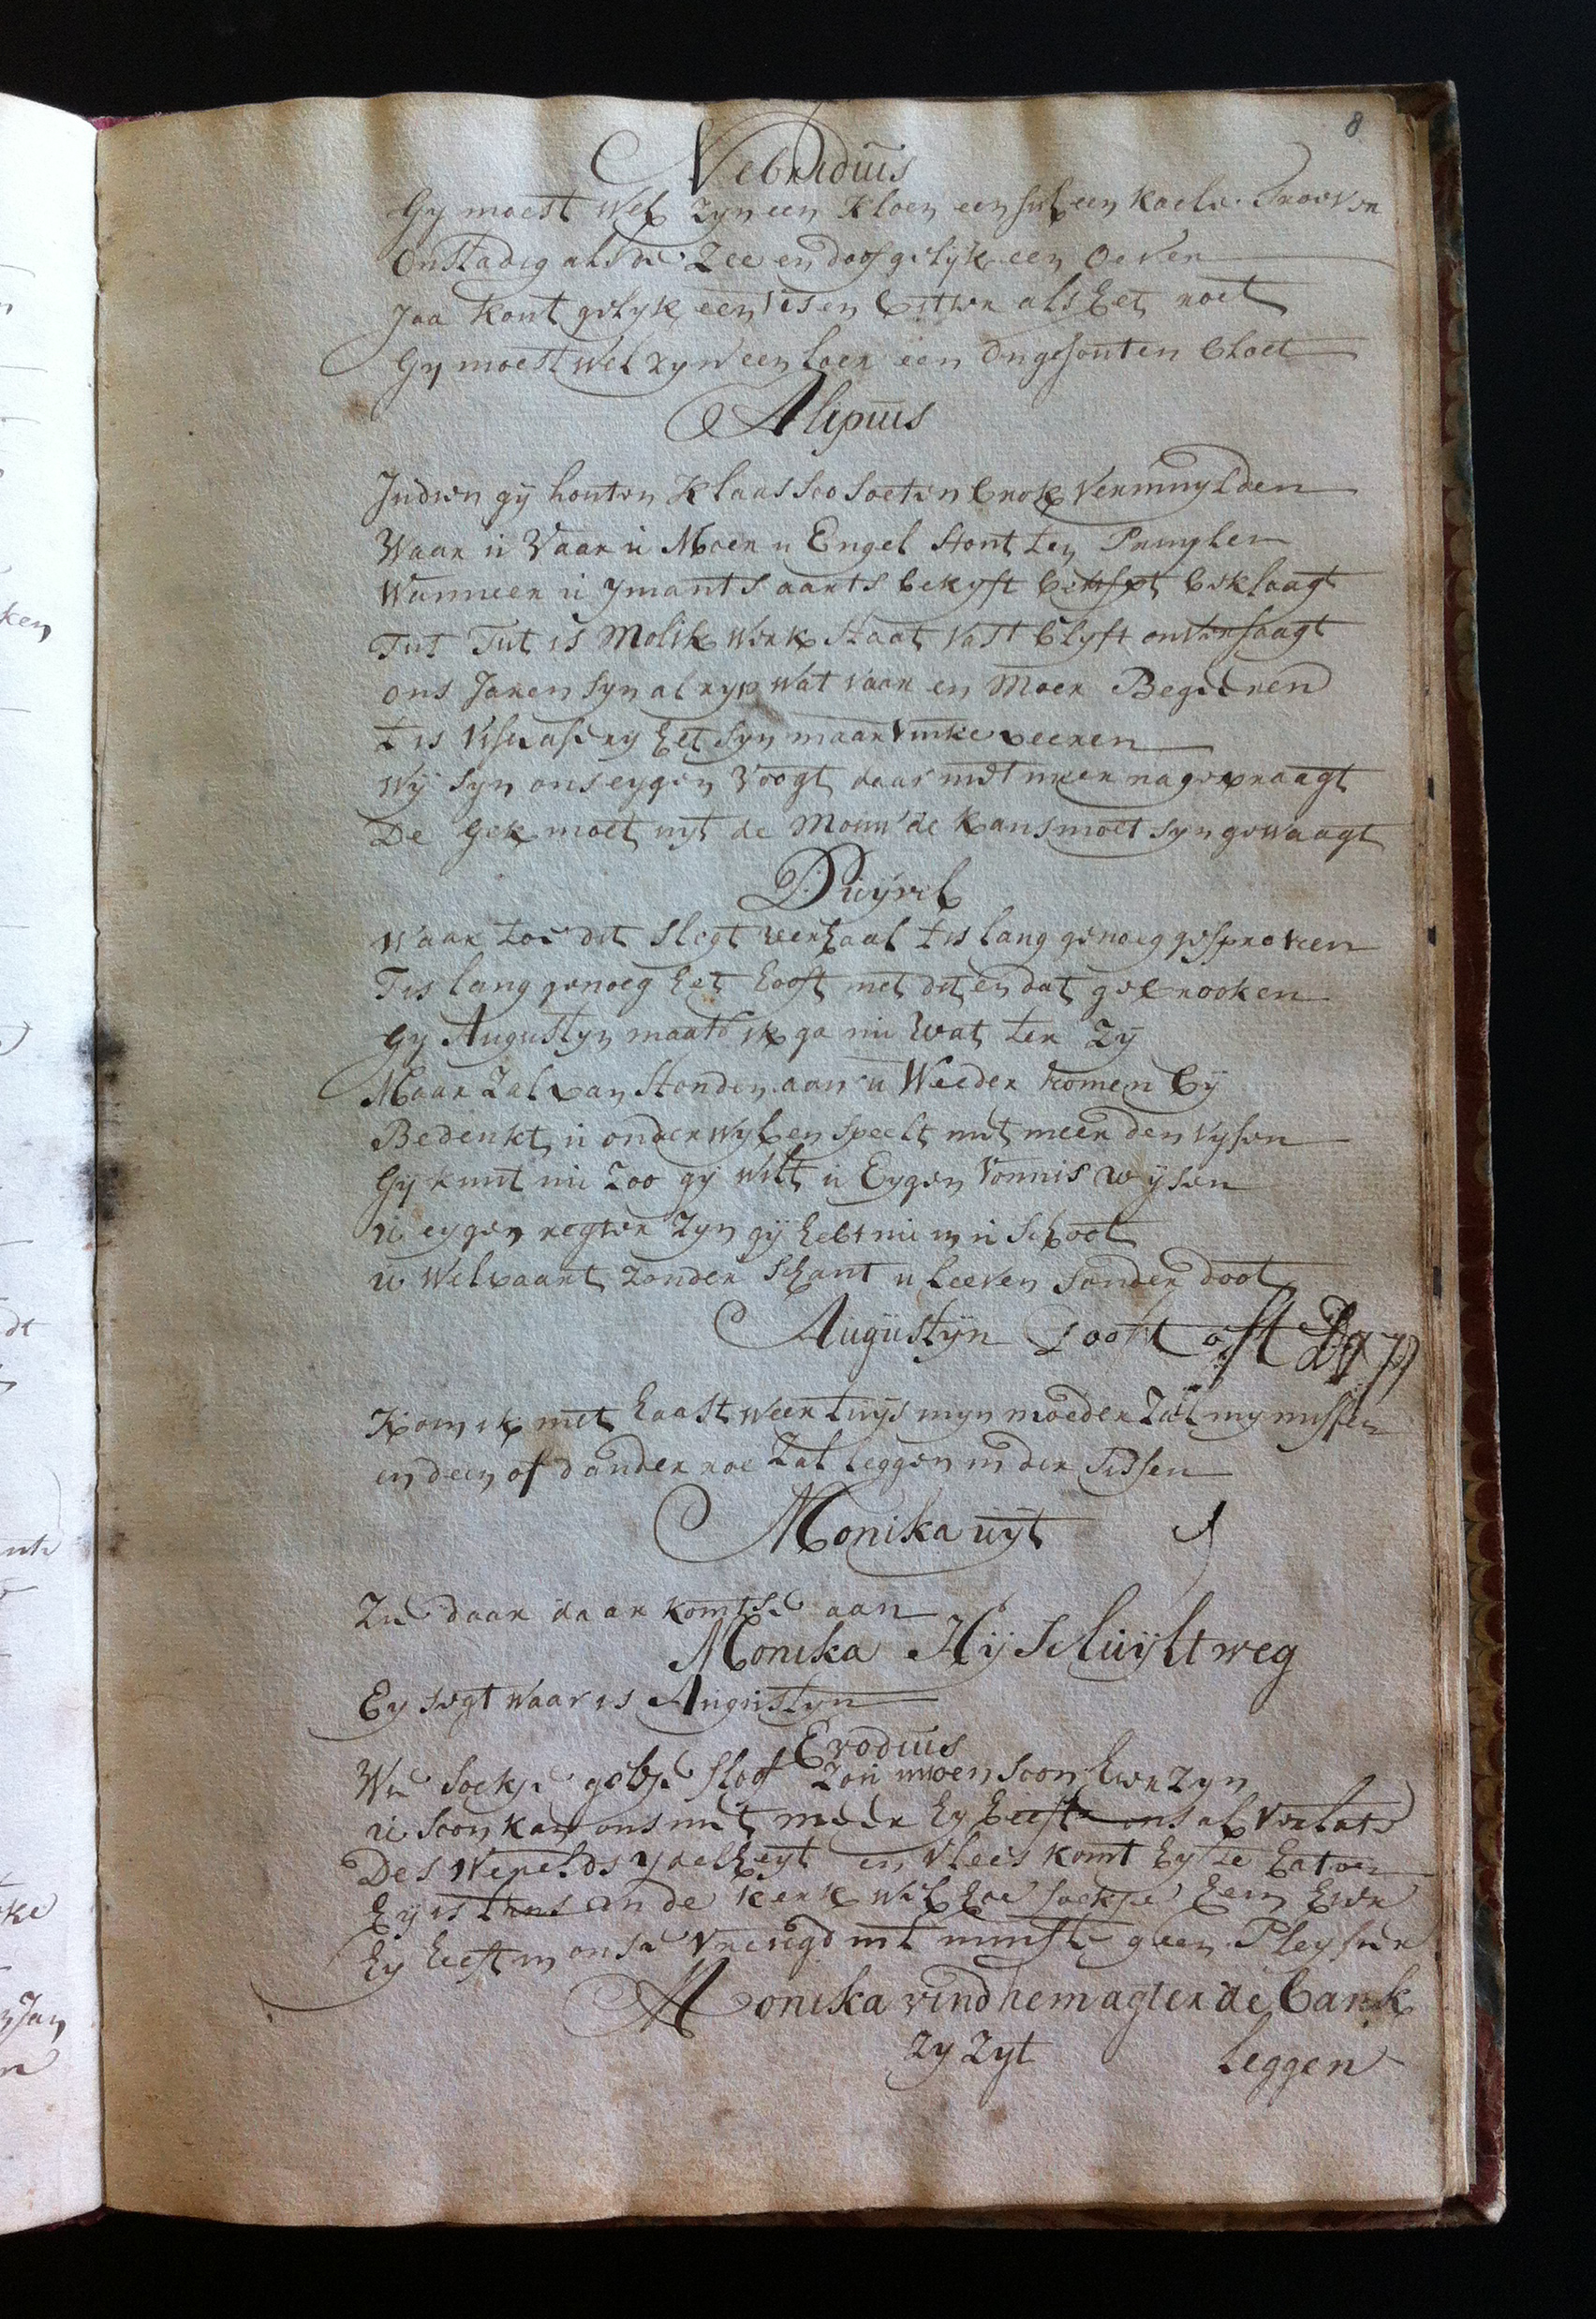 8
Nebridius
Gy moest wel zyn een kloen een sul een koele Troever
Onstadig als de Zee en doof gelijk een oever
Jaa kout gelyk een ysen bitter als het roet
Gy moest wel zyn een loer een ongesouten bloet
Alipius
Indien gy houten Klaas soo soeten brok vermuylden
Waar u Vaar u Moer u Engel stont ten
Wanneer u ymant saarts bekyft berispt beklaagt
Tut Tut is Molik werk staat vast blyft onversaagt
ons Jaren syn al ryp wat vaar en Moer Begeeren
t is viseasery het syn maar vinke veeren
wij syn ons eygen Voogt daar niet meer na gevraagt
De Gek moet uyt de Mouw de kans moet syn gewaagt
Duyvel
Waar toe dit slegt verhaal t is lang genoeg gesproken
Tis lang genoeg het hooft met dit en dat gebrooken
Gy Augustyn maats ik ga nu wat ter zy
Maar zal van stonden aan u weeder komen by
Bedenkt u onderwyl en speelt niet meer den vysen
Gij kunt nu zoo gy wilt u Eygen Vonnis wysen
u eygen regter zyn gij hebt nu in u schoot
u Welvaart zonder schant u leeven sonder doot
Augustyn
Kom ik niet haast weer tuys myn moeder zal my missen
en deen of dander roe zal leggen in der sissen
Monika uyt
Zie daar daar komt se aan
Monika Hij Schuylt weg
Ey segt waar is Augustyn
Evodius
Wie soekje gebje sloof zou uwen soon hier zyn
u soon kan ons niet meer hy heeft ons al verlate
Des werelds ydelheyt en vlees komt hy te haten
Hy is tans in de kerk wel hoe soekje hem hier
hy heeft in onse vreugd int minste geen Pleysier
Monika vind hem agter de bank
zy zyt leggen